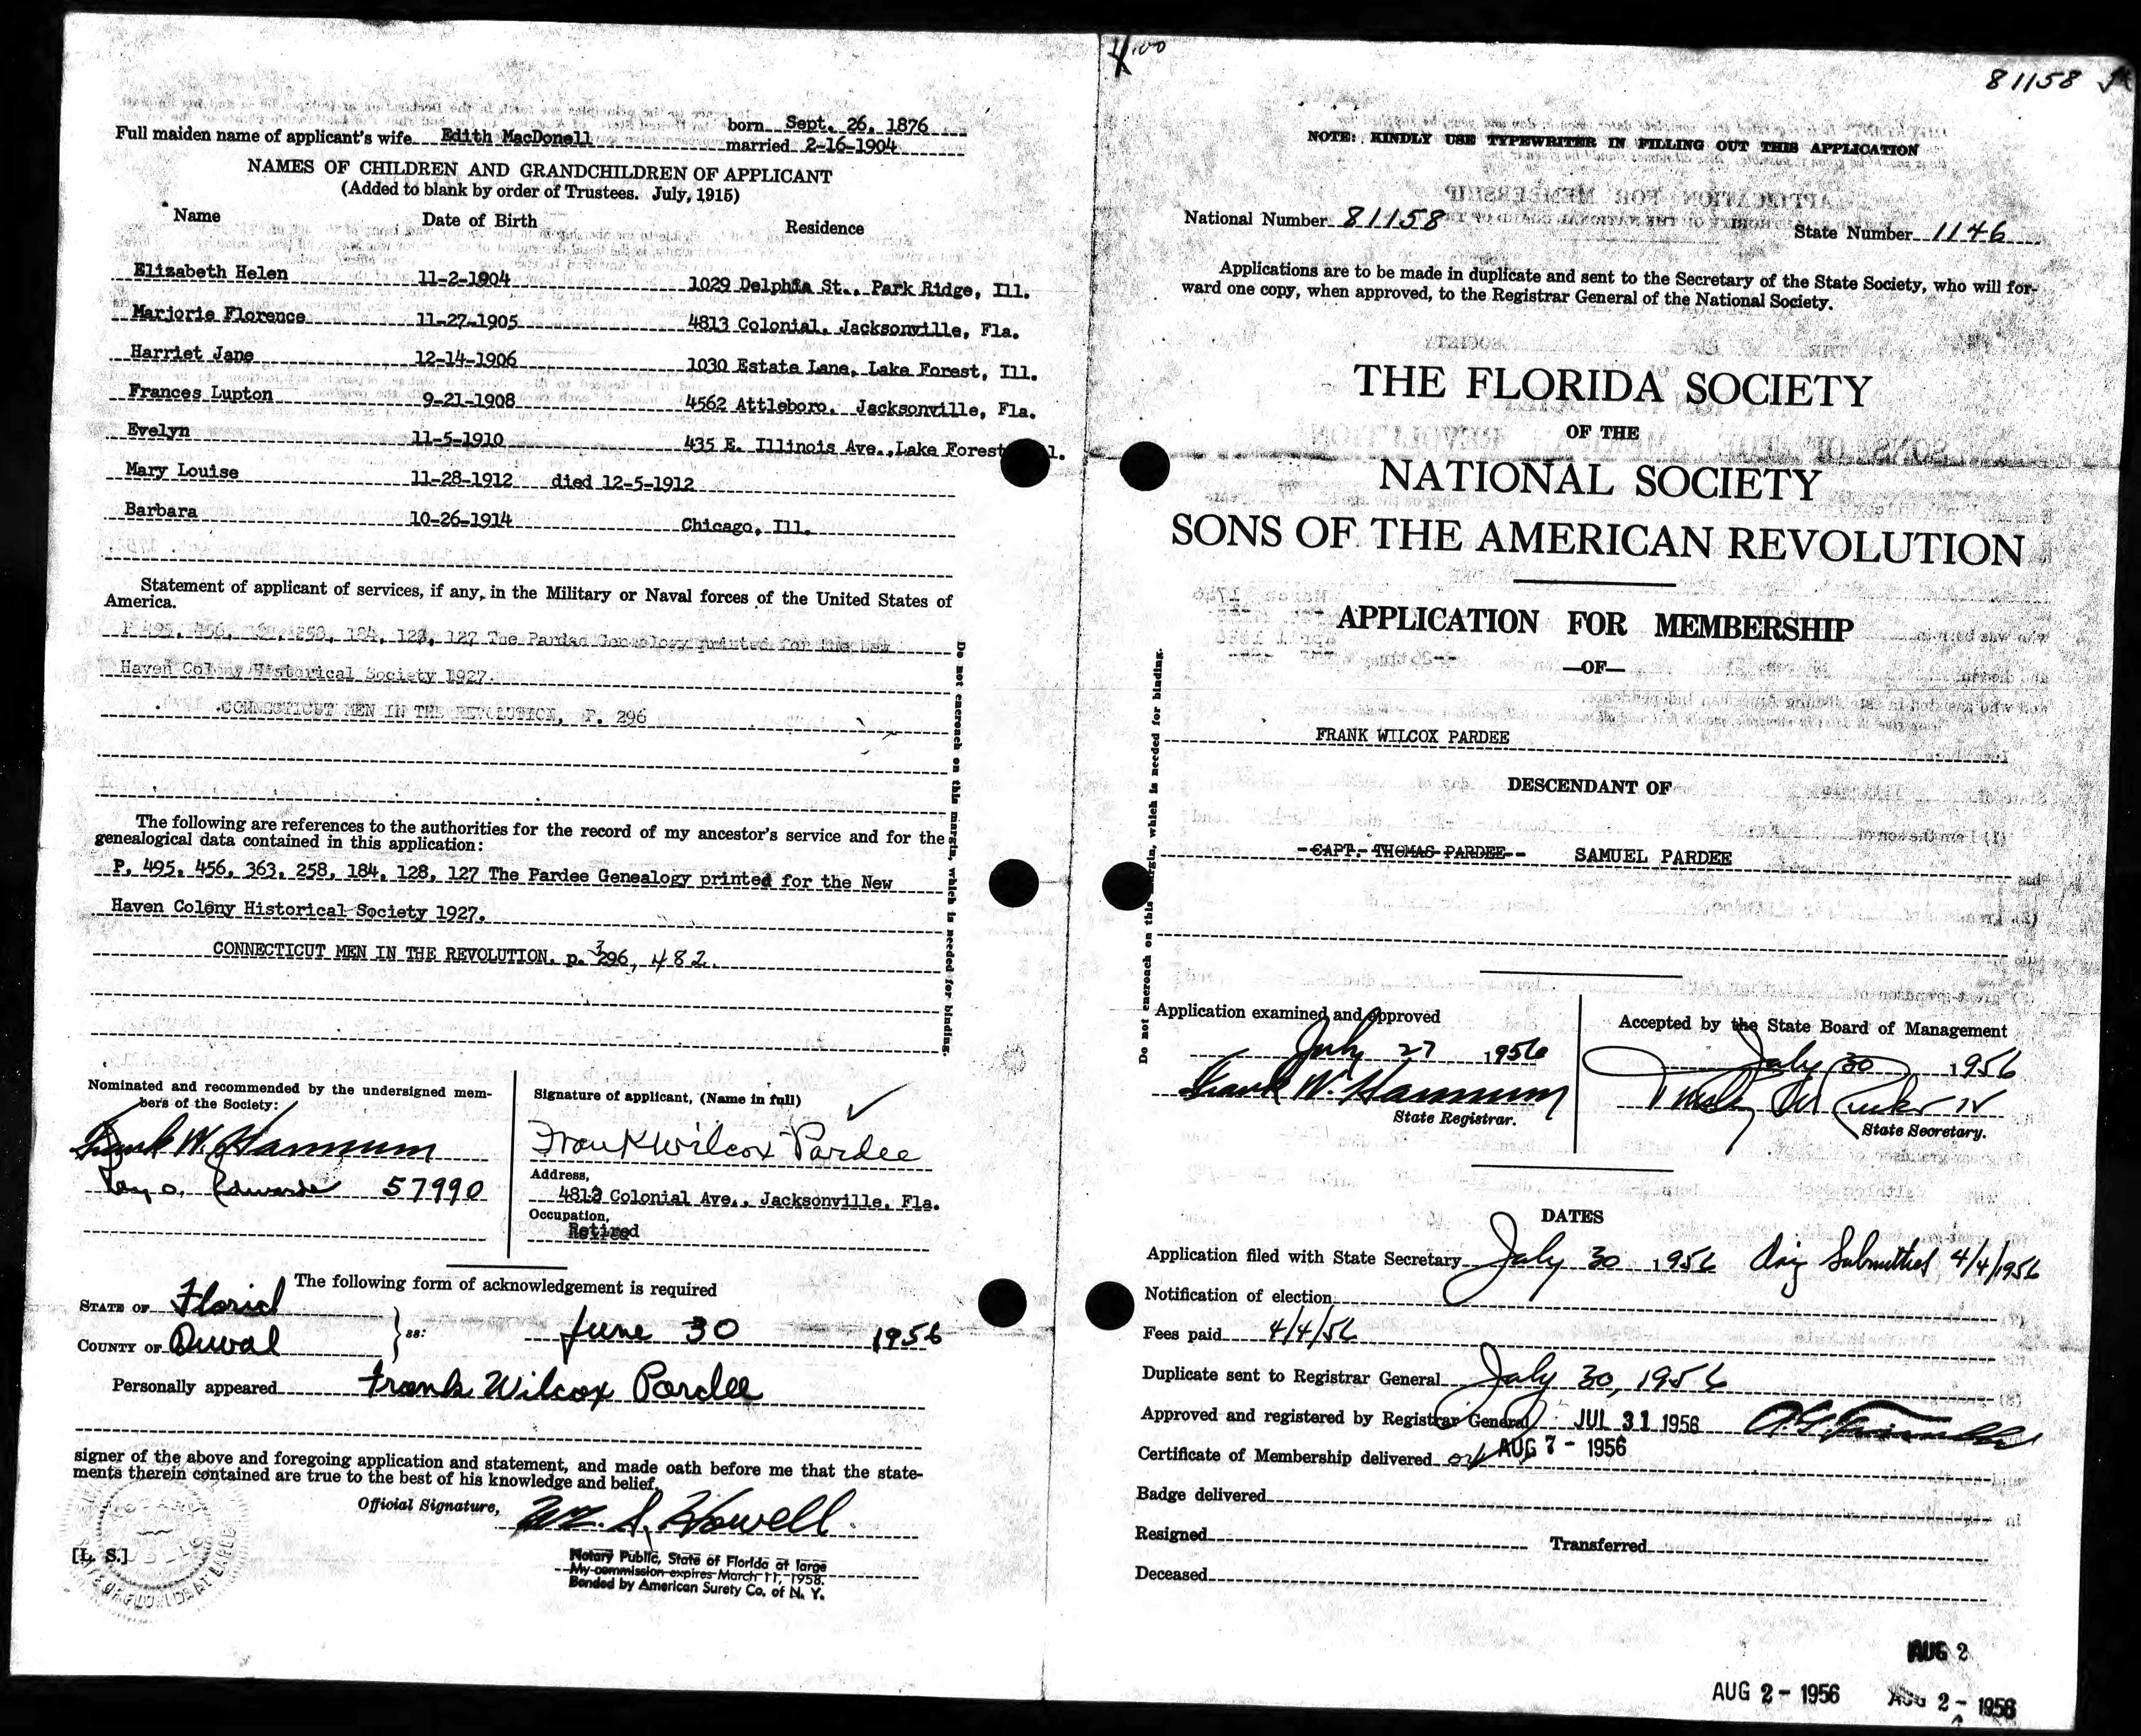 Full maiden name of applicant's wife Edith MacDonell born Sept. 26, 1876
married 2-16-1904
NAMES OF CHILDREN AND GRANDCHILDREN OF APPLICANT
(Added to blank by order of Trustees. July, 1915)
Name Date of Birth Residence
Elizabeth Helen 11-2-1904 1029 Delphia St., Park Ridge, Ill.
Marjorie Florence 11-27-1905 4813 Colonial, Jacksonville, Fla.
Harriet Jane 12-14-1906 1030 Estate Lane, Lake Forest, Ill.
Frances Lupton 9-21-1908 4562 Attleboro, Jacksonville, Fla.
Evelyn 11-5-1910 435 E. Illinois Ave., Lake Forest
Mary Louise 11-28-1912 died 12-5-1912
Barbara 10-26-1914 Chicago, Ill.
Statement of applicant of services, if any, in the Military or Naval forces of the United States of
America.
P 495, 456, 258, 184, 127 The Pardee Genealogy printed for the New
Haven Colony Historical Society 1927.
CONNECTICUT MEN IN THE REVOLUTION, P. 296
The following are references to the authorities for the record of my ancestor's service and for the
genealogical data contained in this application:
P. 495, 456, 363, 258, 184, 128, 127 The Pardee Genealogy printed for the New
Haven Colony Historical Society 1927.
CONNECTICUT MEN IN THE REVOLUTION. p. 396, 482.
Do not encroach on this margin, which is needed for binding.
Nominated and recommended by the undersigned mem-
bers of the Society:
Frank W. Hannum
Edwards 57990
Signature of applicant, (Name in full)
Frank Wilcox Pardee
Address,
4813 Colonial Ave., Jacksonville, Fla.
Occupation,
Retired
The following form of acknowledgement is required
STATE OF Florid
COUNTY OF Duval ss: June 30 1956
Personally appeared Frank Wilcox Pardee
signer of the above and foregoing application and statement, and made oath before me that the state-
ments therein contained are true to the best of his knowledge and belief.
Official Signature, Wm. S. Howell
[L. S.]
Notary Public, State of Florida at large
My commission expires March 11, 1958.
Bonded by American Surety Co. of N. Y.
4.00
81158
NOTE: KINDLY USE TYPEWRITER IN FILLING OUT THIS APPLICATION
National Number 81158 State Number 1146
Applications are to be made in duplicate and sent to the Secretary of the State Society, who will for-
ward one copy, when approved, to the Registrar General of the National Society.
THE FLORIDA SOCIETY
OF THE
NATIONAL SOCIETY
SONS OF THE AMERICAN REVOLUTION
APPLICATION FOR MEMBERSHIP
—OF—
FRANK WILCOX PARDEE
DESCENDANT OF
CAPT. THOMAS PARDEE SAMUEL PARDEE
Do not encroach on this margin, which is needed for binding.
Application examined and approved
July 27 1956
Frank W. Hannum
State Registrar.
Accepted by the State Board of Management
July 30 1956
State Secretary.
DATES
Application filed with State Secretary July 30 1956 Orig Submitted 4/4/1956
Notification of election
Fees paid 4/4/56
Duplicate sent to Registrar General July 30, 1956
Approved and registered by Registrar General JUL 31 1956
Certificate of Membership delivered AUG 7 - 1956
Badge delivered
Resigned Transferred
Deceased
AUG 2
AUG 2 - 1956 AUG 2 - 1956